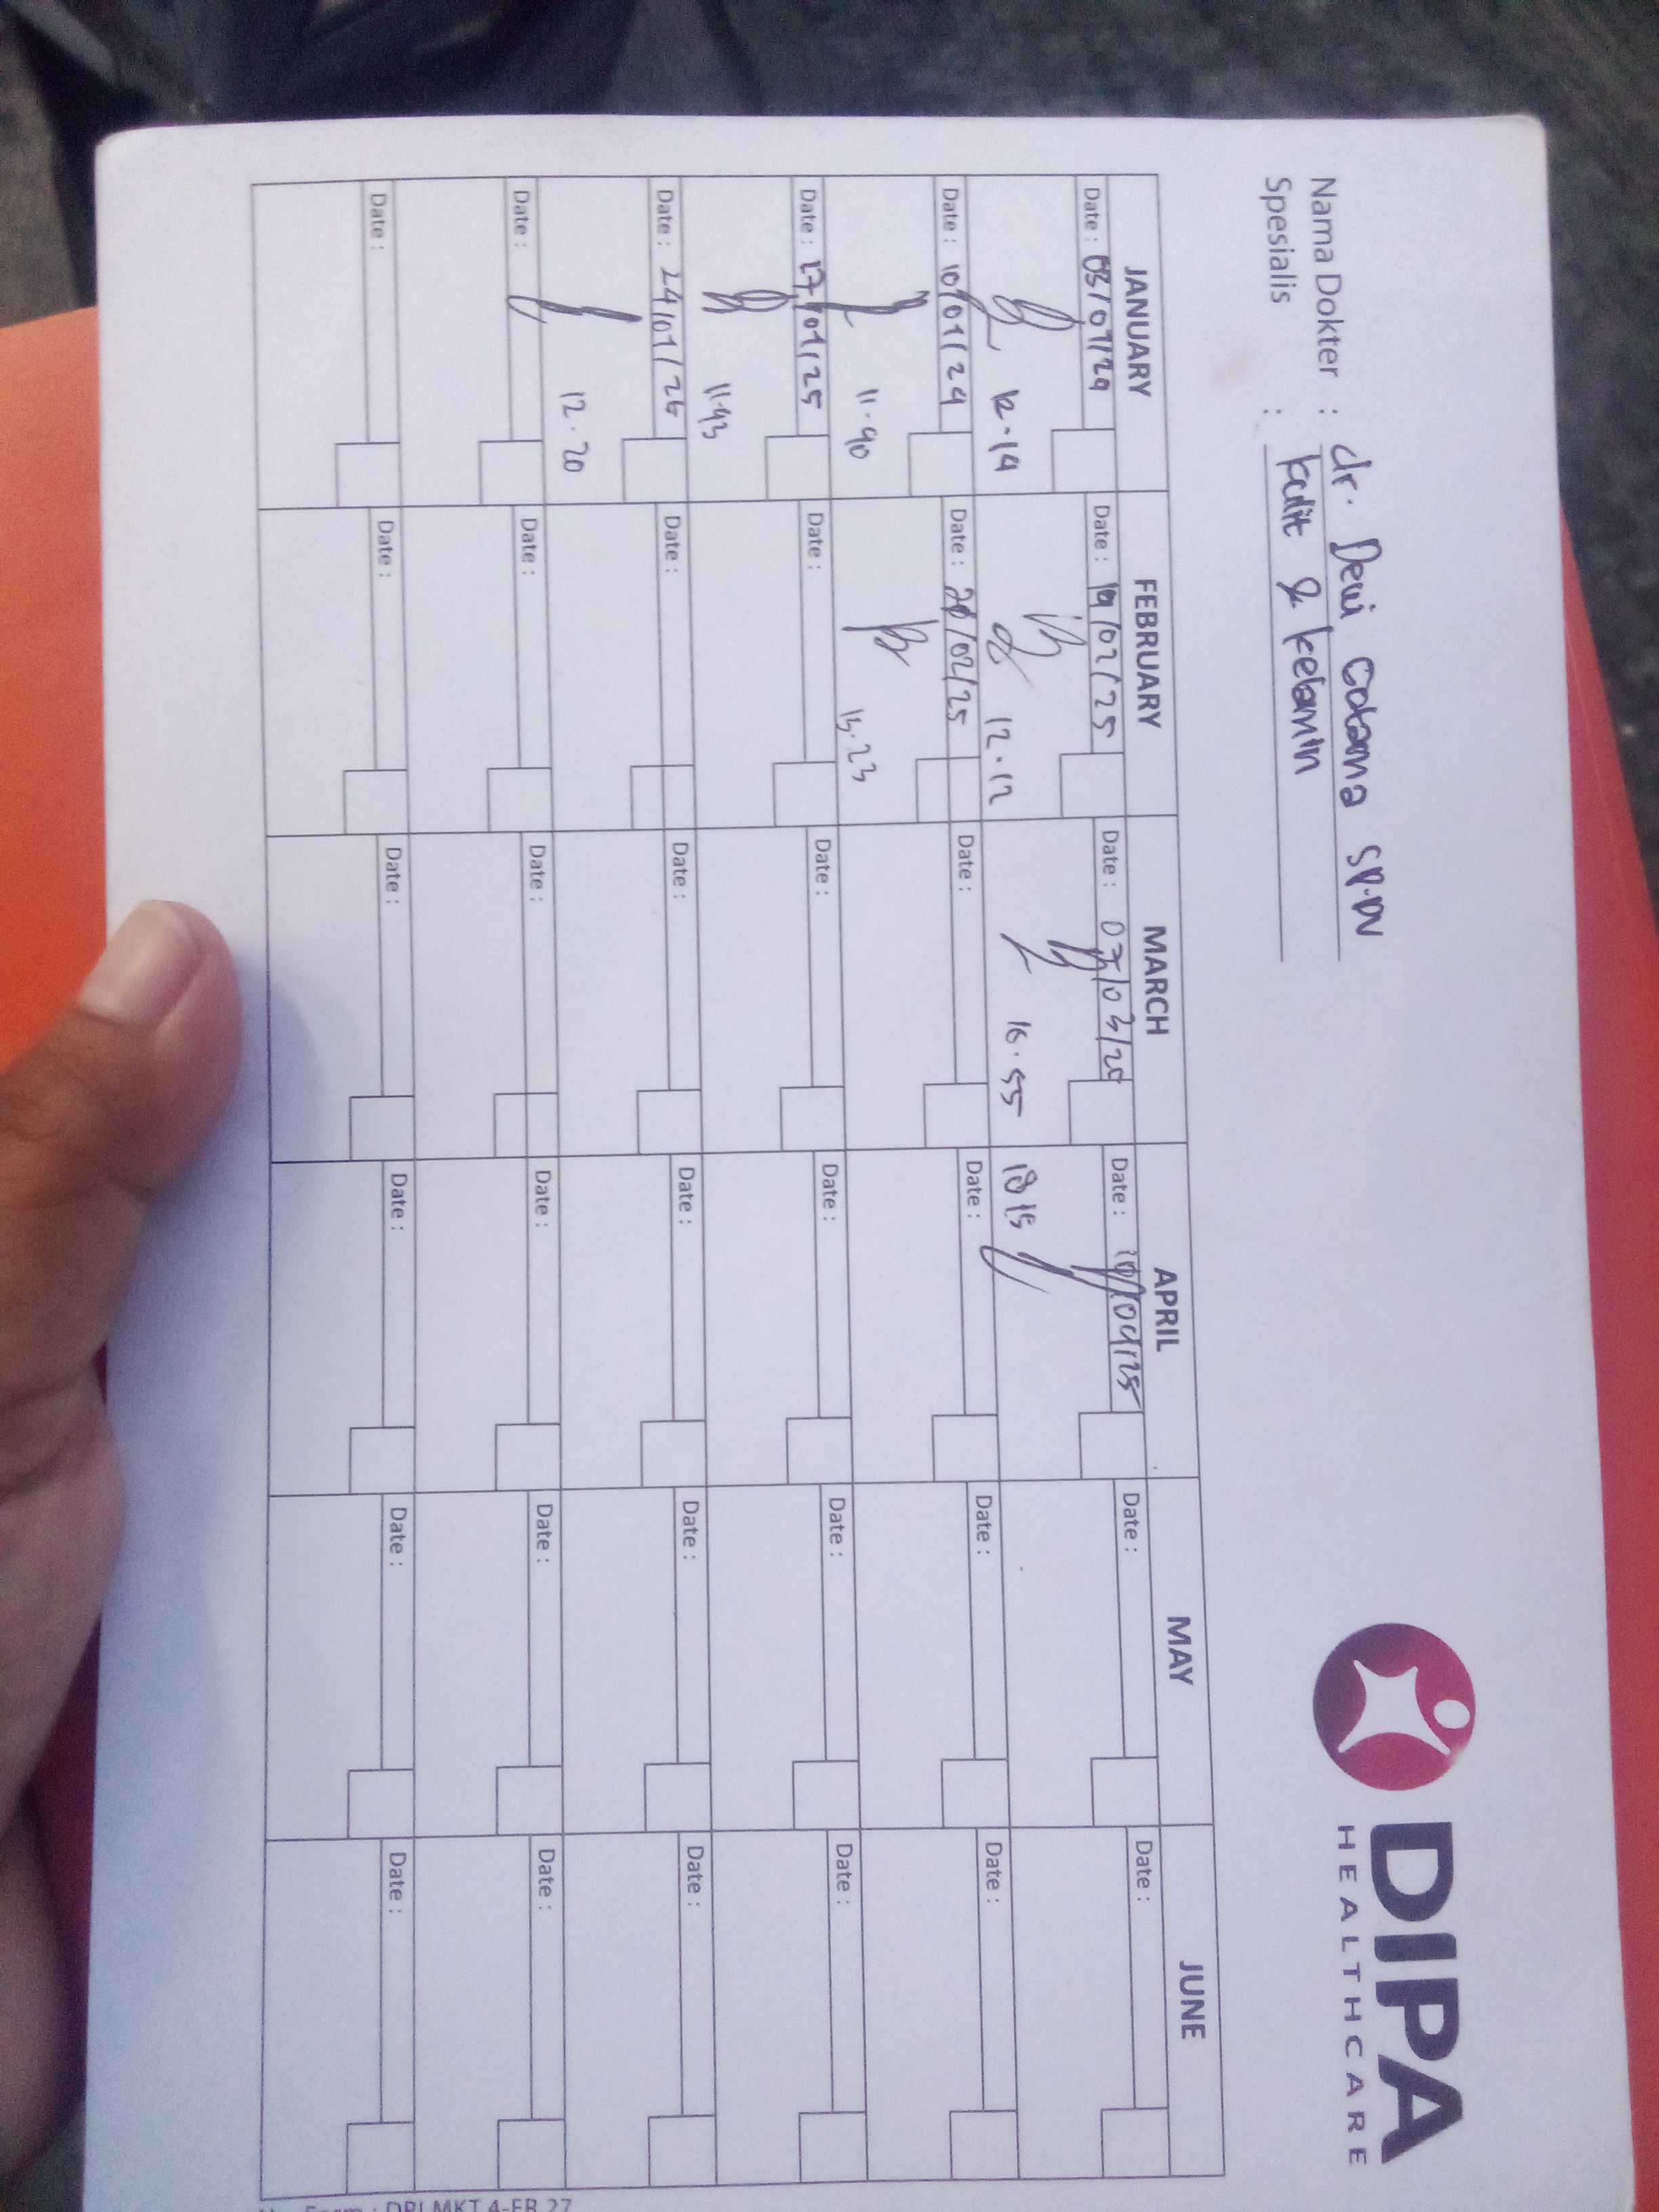 DIPA
HEALTHCARE
Nama Dokter : dr. Dewi Cotama SP.DV
Spesialis : kulit & kelamin
JANUARY FEBRUARY MARCH APRIL MAY JUNE
Date : 03/01/24 Date : 19/02/25 Date : 07/03/25 Date : 10/04/25 Date : Date :
12.14 12.12 16.55 18 15
Date : 10/01/24 Date : 20/02/25 Date : Date : Date : Date :
11.40 15.23
Date : 17/01/25 Date : Date : Date : Date : Date :
11.43
Date : 24/01/25 Date : Date : Date : Date : Date :
12.20
Date : Date : Date : Date : Date : Date :
Date : Date : Date : Date : Date : Date :
Form : DPI.MKT.4-FR.27